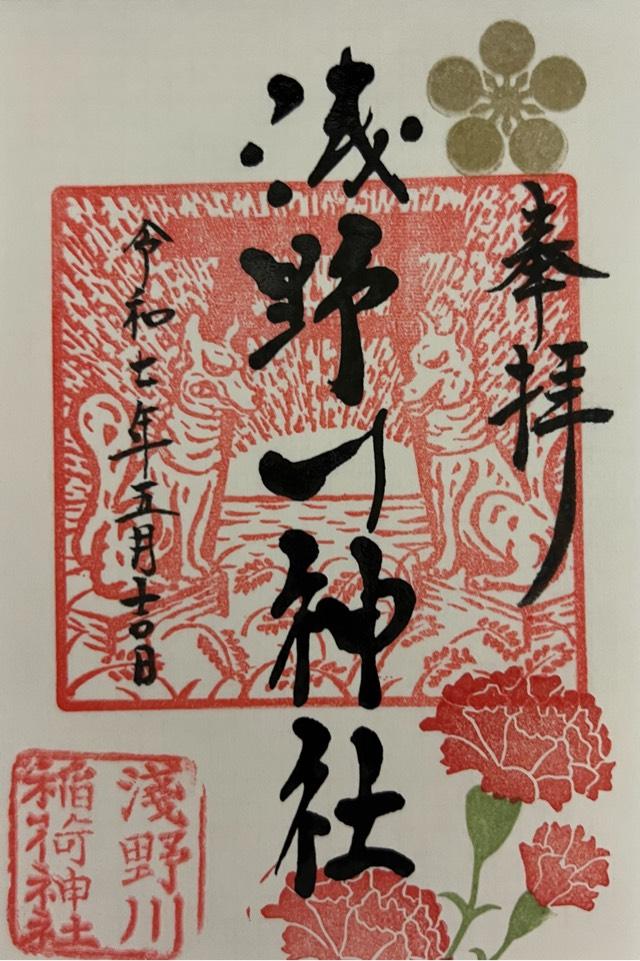 奉拝
浅野川神社
令和七年五月十四日
淺野川
稲荷神社